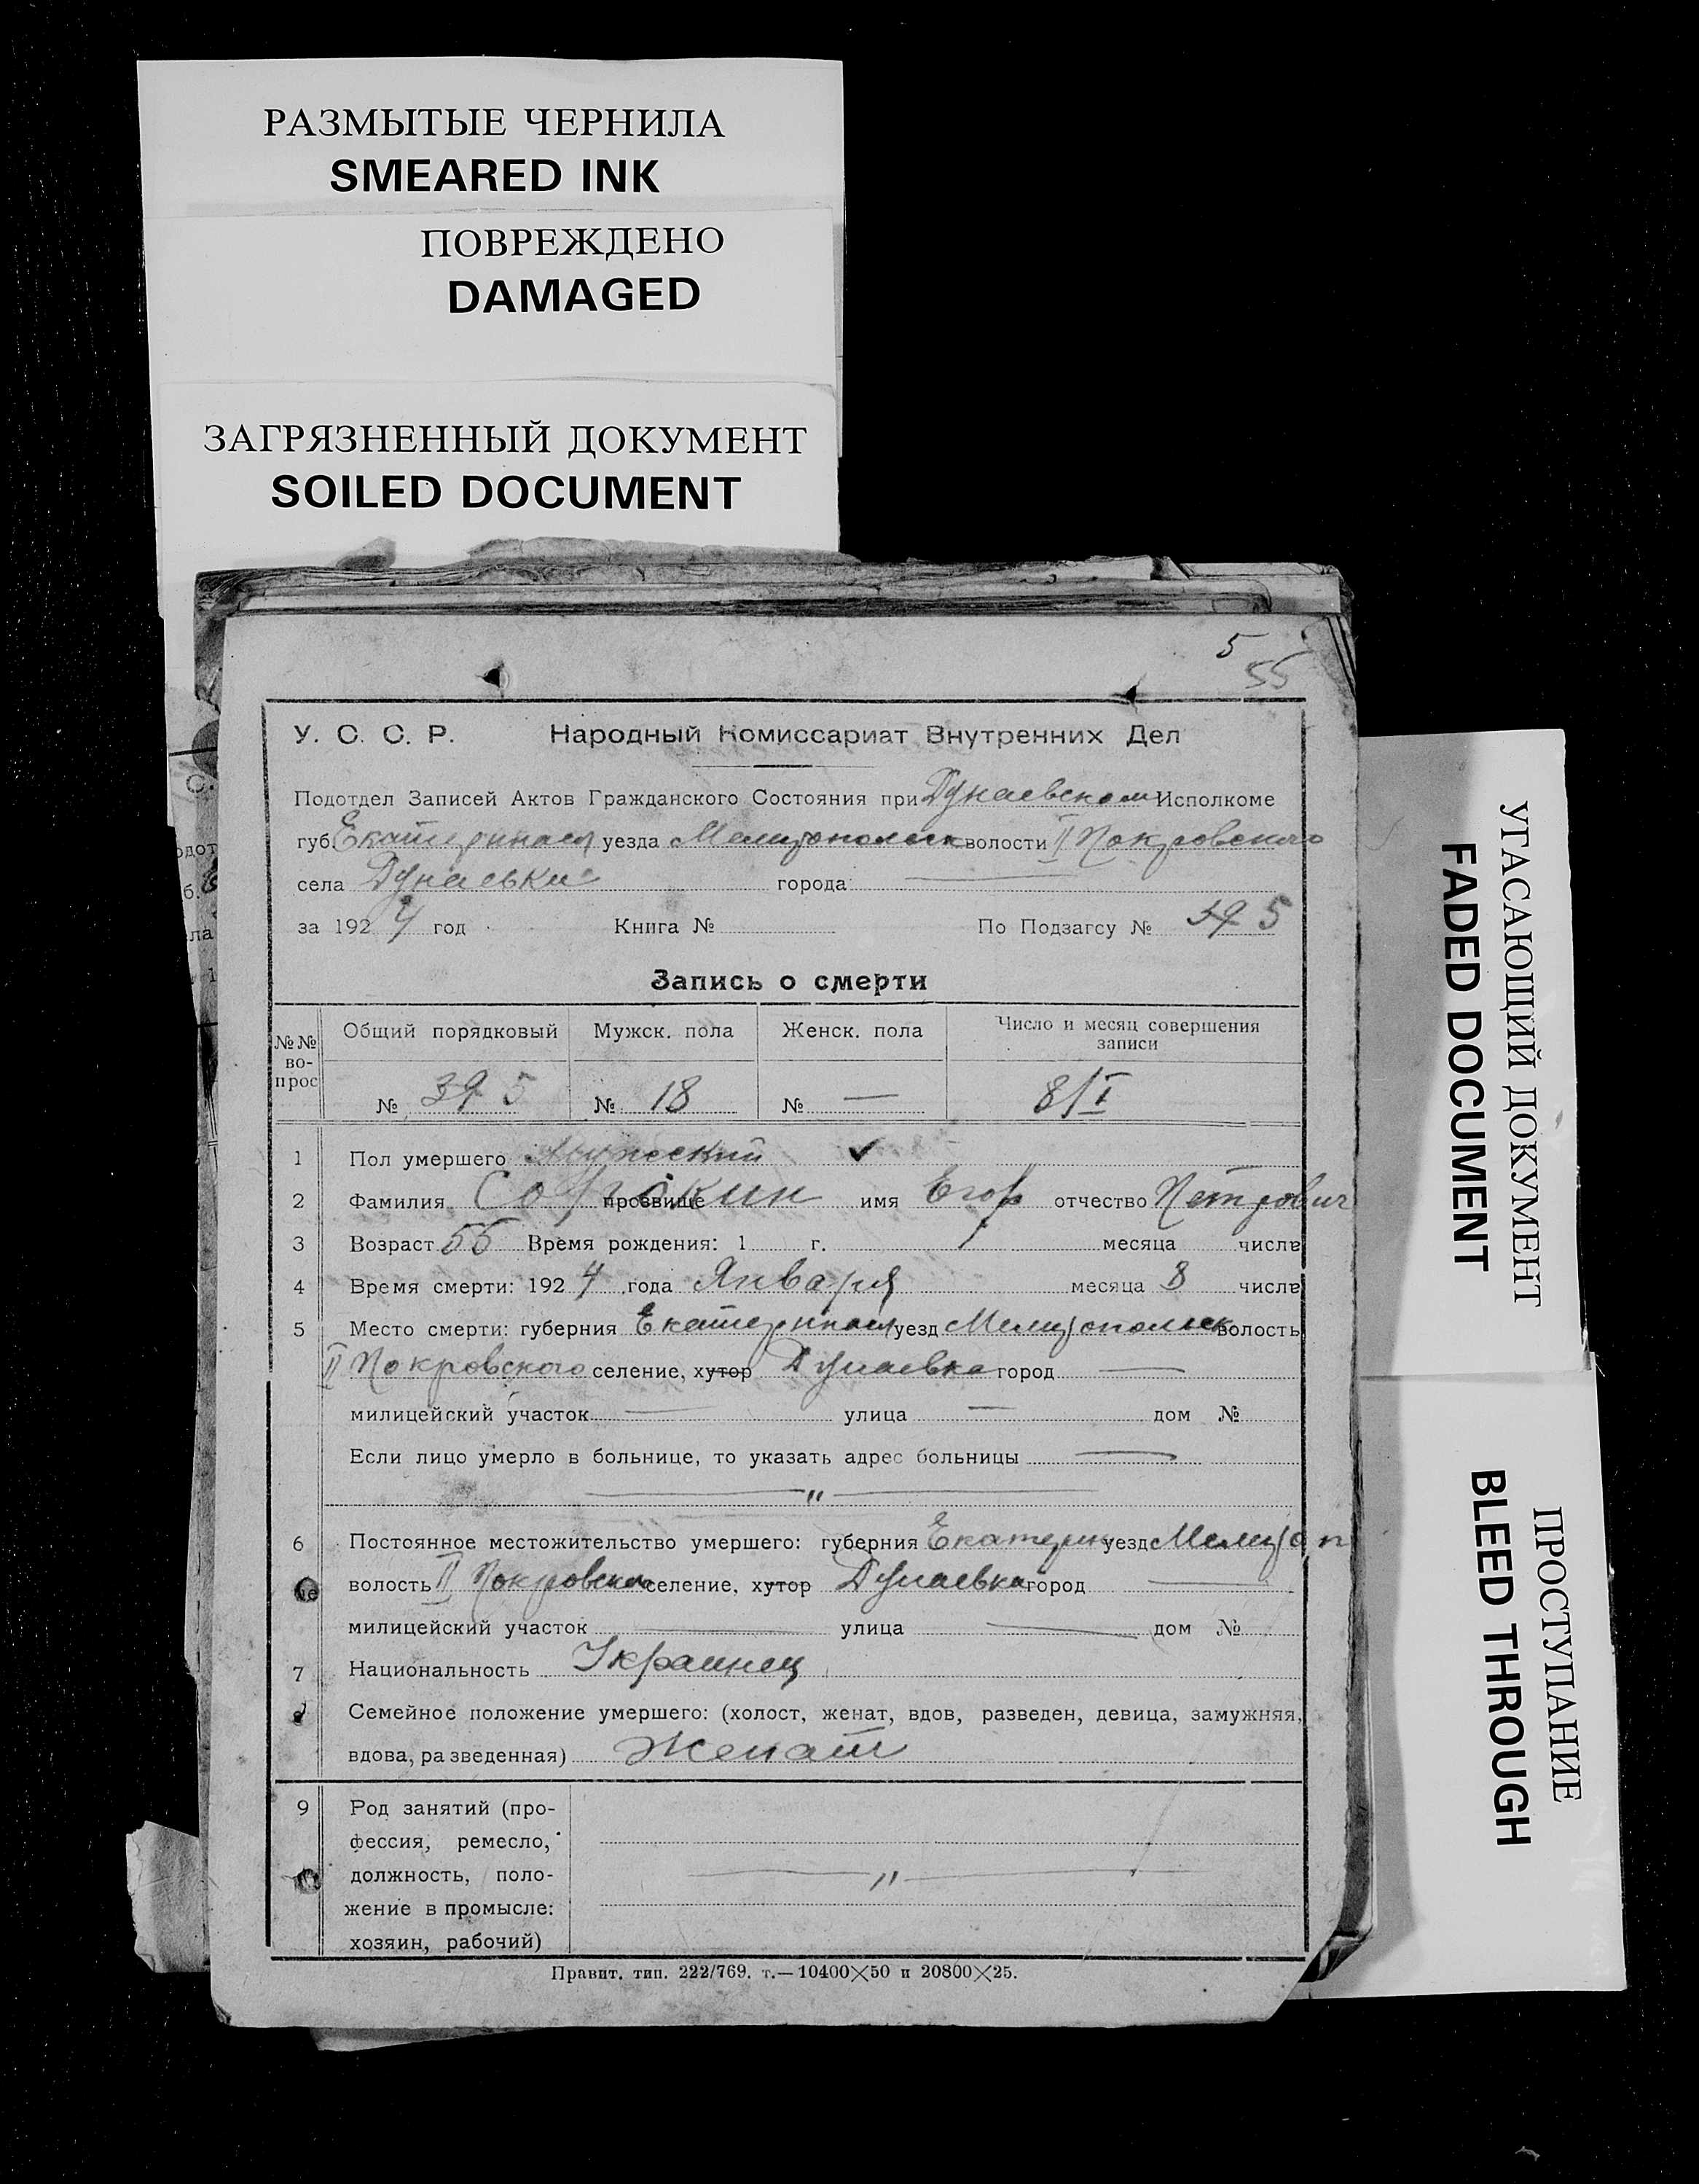 РАЗМЫТЫЕ ЧЕРНИЛА
SMEARED INK
ПОВРЕЖДЕНО
DAMAGED
ЗАГРЯЗНЕННЫЙ ДОКУМЕНТ
SOILED DOCUMENT
5
55
У. С. С. Р. Народный Комиссариат Внутренних Дел
Подотдел Записей Актов Гражданского Состояния при Дунаевском Исполкоме
губ. Екатериносл уезда Мелитопольск волости II Покровского
села Дунаевки города —
за 1924 год Книга № По Подзагсу № 39 5
Запись о смерти
№№ во-прос
Общий порядковый Мужск. пола Женск. пола Число и месяц совершения записи
№ 39 5 № 18 № — 8/I
1 Пол умершего Мужеский ✓
2 Фамилия прозвище имя Егор отчество Петрович
3 Возраст 55 Время рождения: 1 г. месяца числа
4 Время смерти: 1924 года Января месяца 8 числа
5 Место смерти: губерния Екатеринosл уезд Мелитопольск волость
II Покровского селение, хутор Дунаевка город —
милицейский участок — улица — дом №
Если лицо умерло в больнице, то указать адрес больницы —
— „ —
6 Постоянное местожительство умершего: губерния Екатерин уезд Мелитоп
волость II Покровская селение, хутор Дунаевка город —
милицейский участок — улица — дом №
7 Национальность Украинец
8 Семейное положение умершего: (холост, женат, вдов, разведен, девица, замужняя,
вдова, разведенная) Женат
9 Род занятий (про-
фессия, ремесло,
должность, поло- — „ —
жение в промысле:
хозяин, рабочий)
Правит. тип. 222/769. т.—10400×50 и 20800×25.
УГАСАЮЩИЙ ДОКУМЕНТ
FADED DOCUMENT
ПРОСТУПАНИЕ
BLEED THROUGH